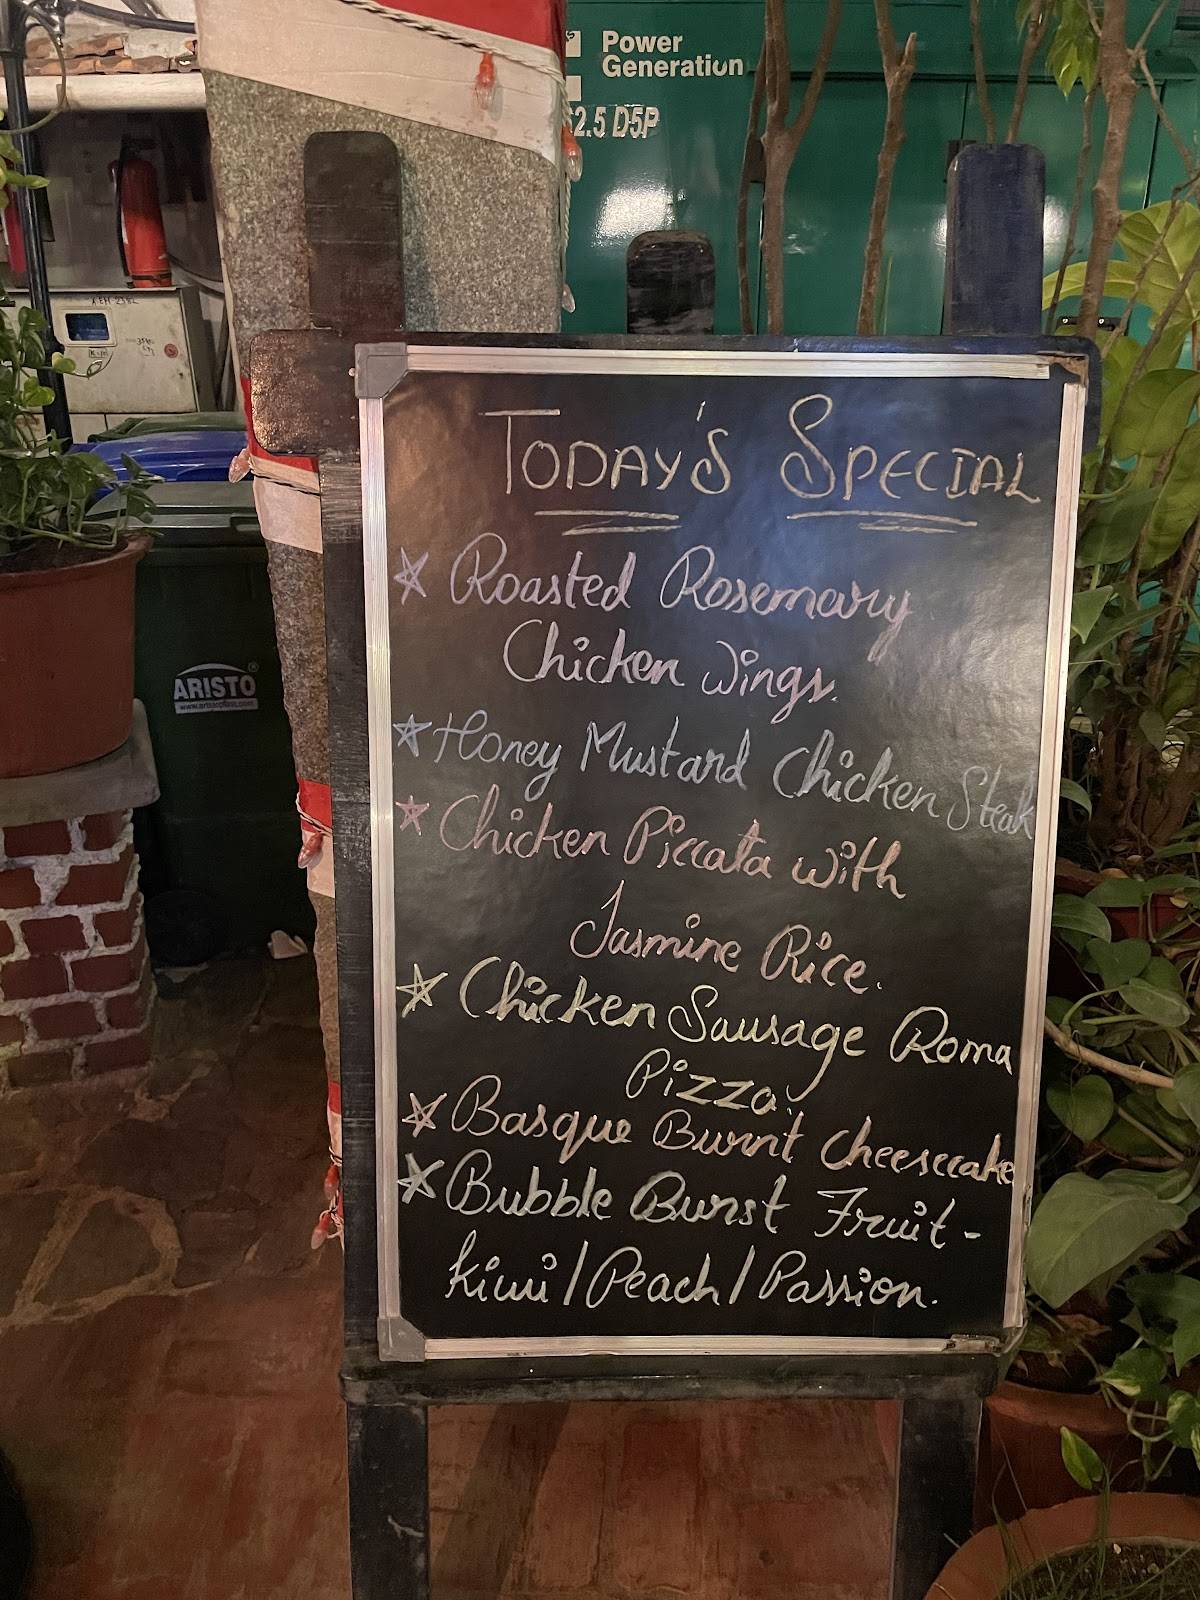 Power
Generation
62.5 D5P
ARISTO
TODAY'S SPECIAL
☆ Roasted Rosemary
Chicken Wings.
☆ Honey Mustard Chicken Steak
☆ Chicken Piccata with
Jasmine Rice.
☆ Chicken Sausage Roma
Pizza.
☆ Basque Burnt Cheesecake
☆ Bubble Burst Fruit -
kiwi / Peach / Passion.